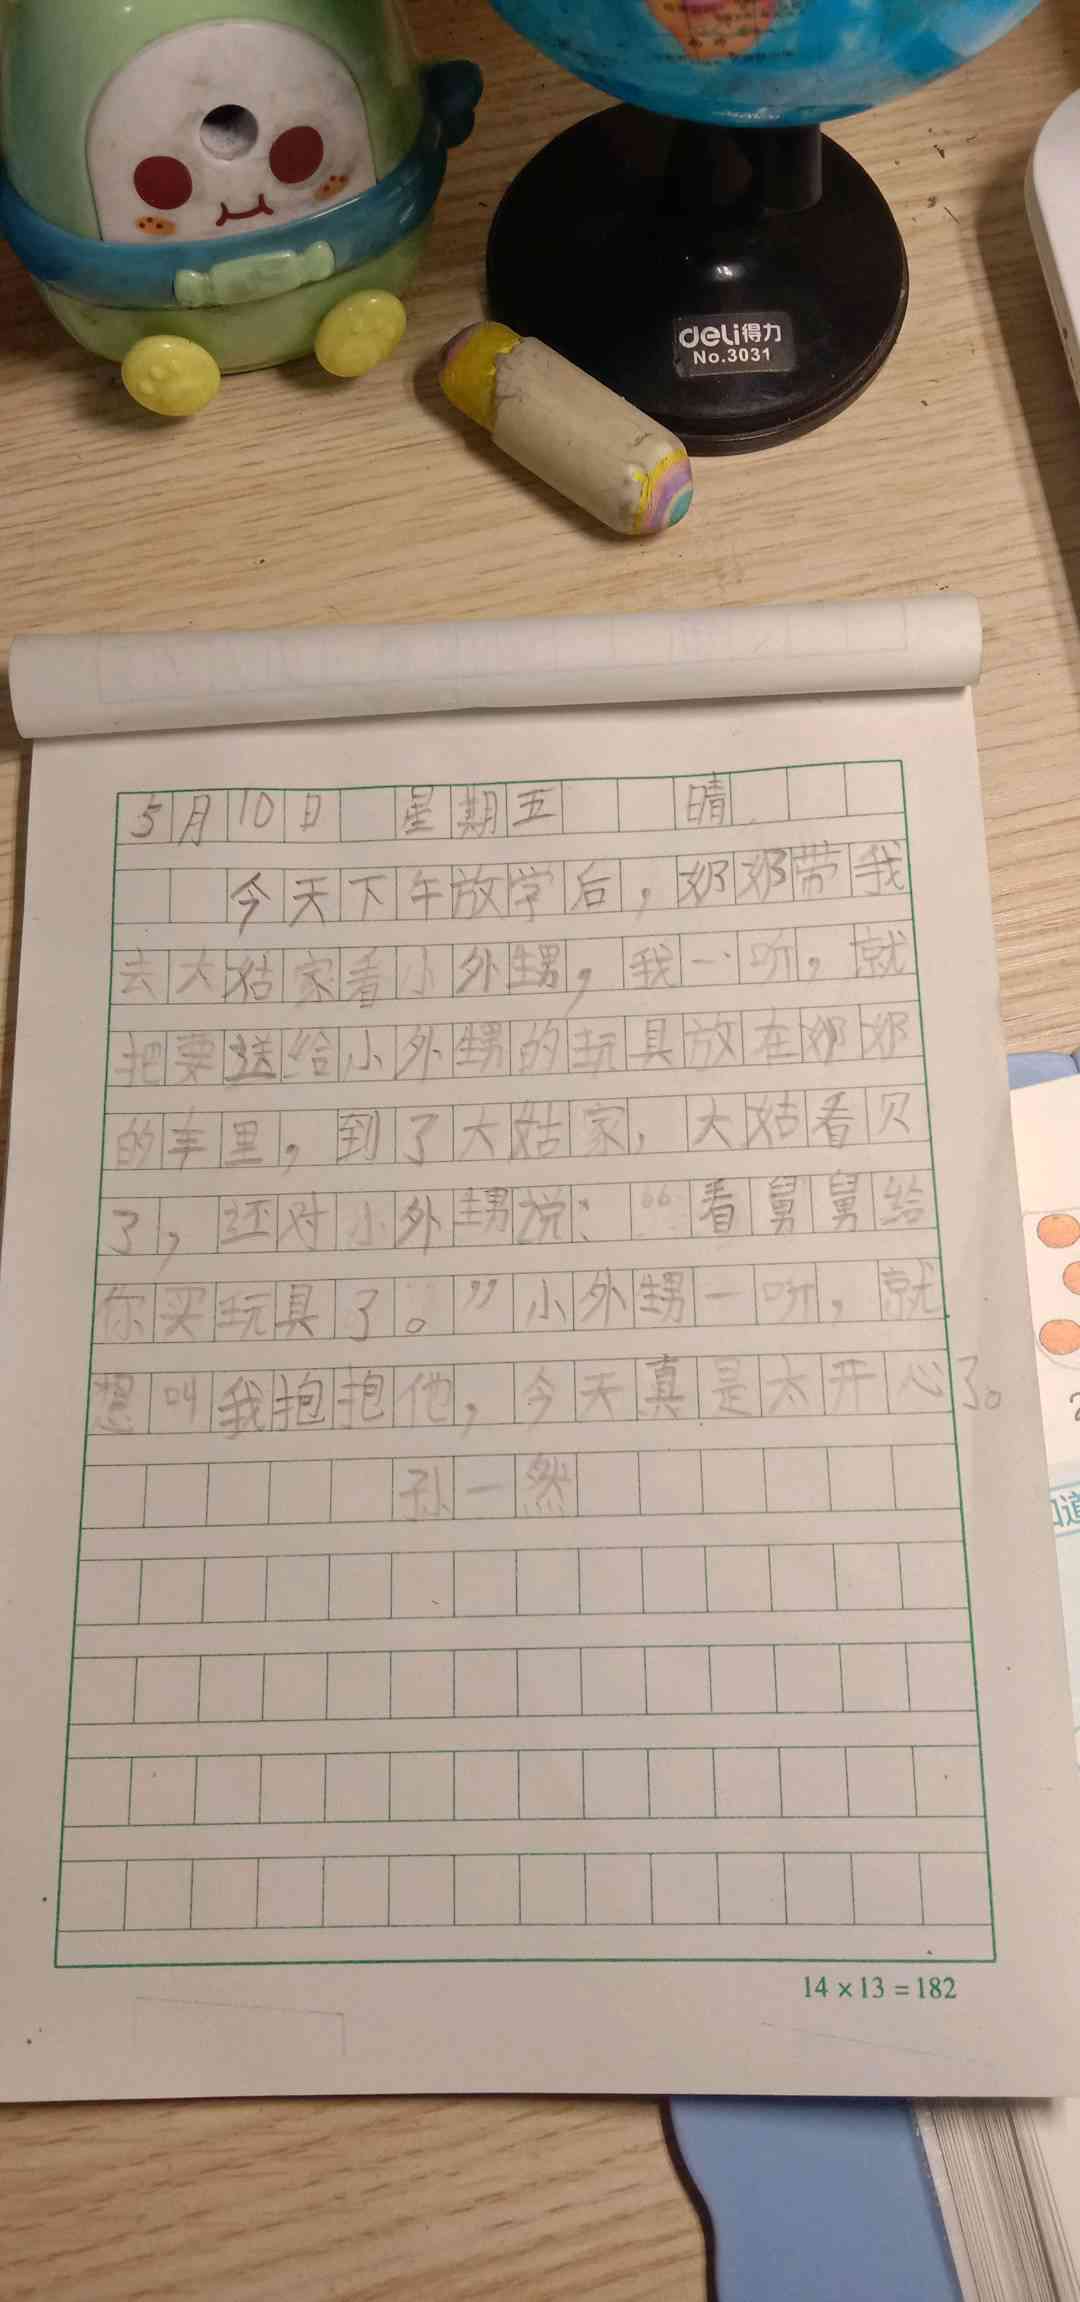 deli得力
No.3031
5月10日 星期五 晴
今天下午放学后，奶奶带我
去大姑家看小外甥，我一听，就
把要送给小外甥的玩具放在奶奶
的车里，到了大姑家，大姑看见
了，还对小外甥说：“看舅舅给
你买玩具了。”小外甥一听，就
想叫我抱抱他，今天真是太开心了。
孙一然
14×13=182